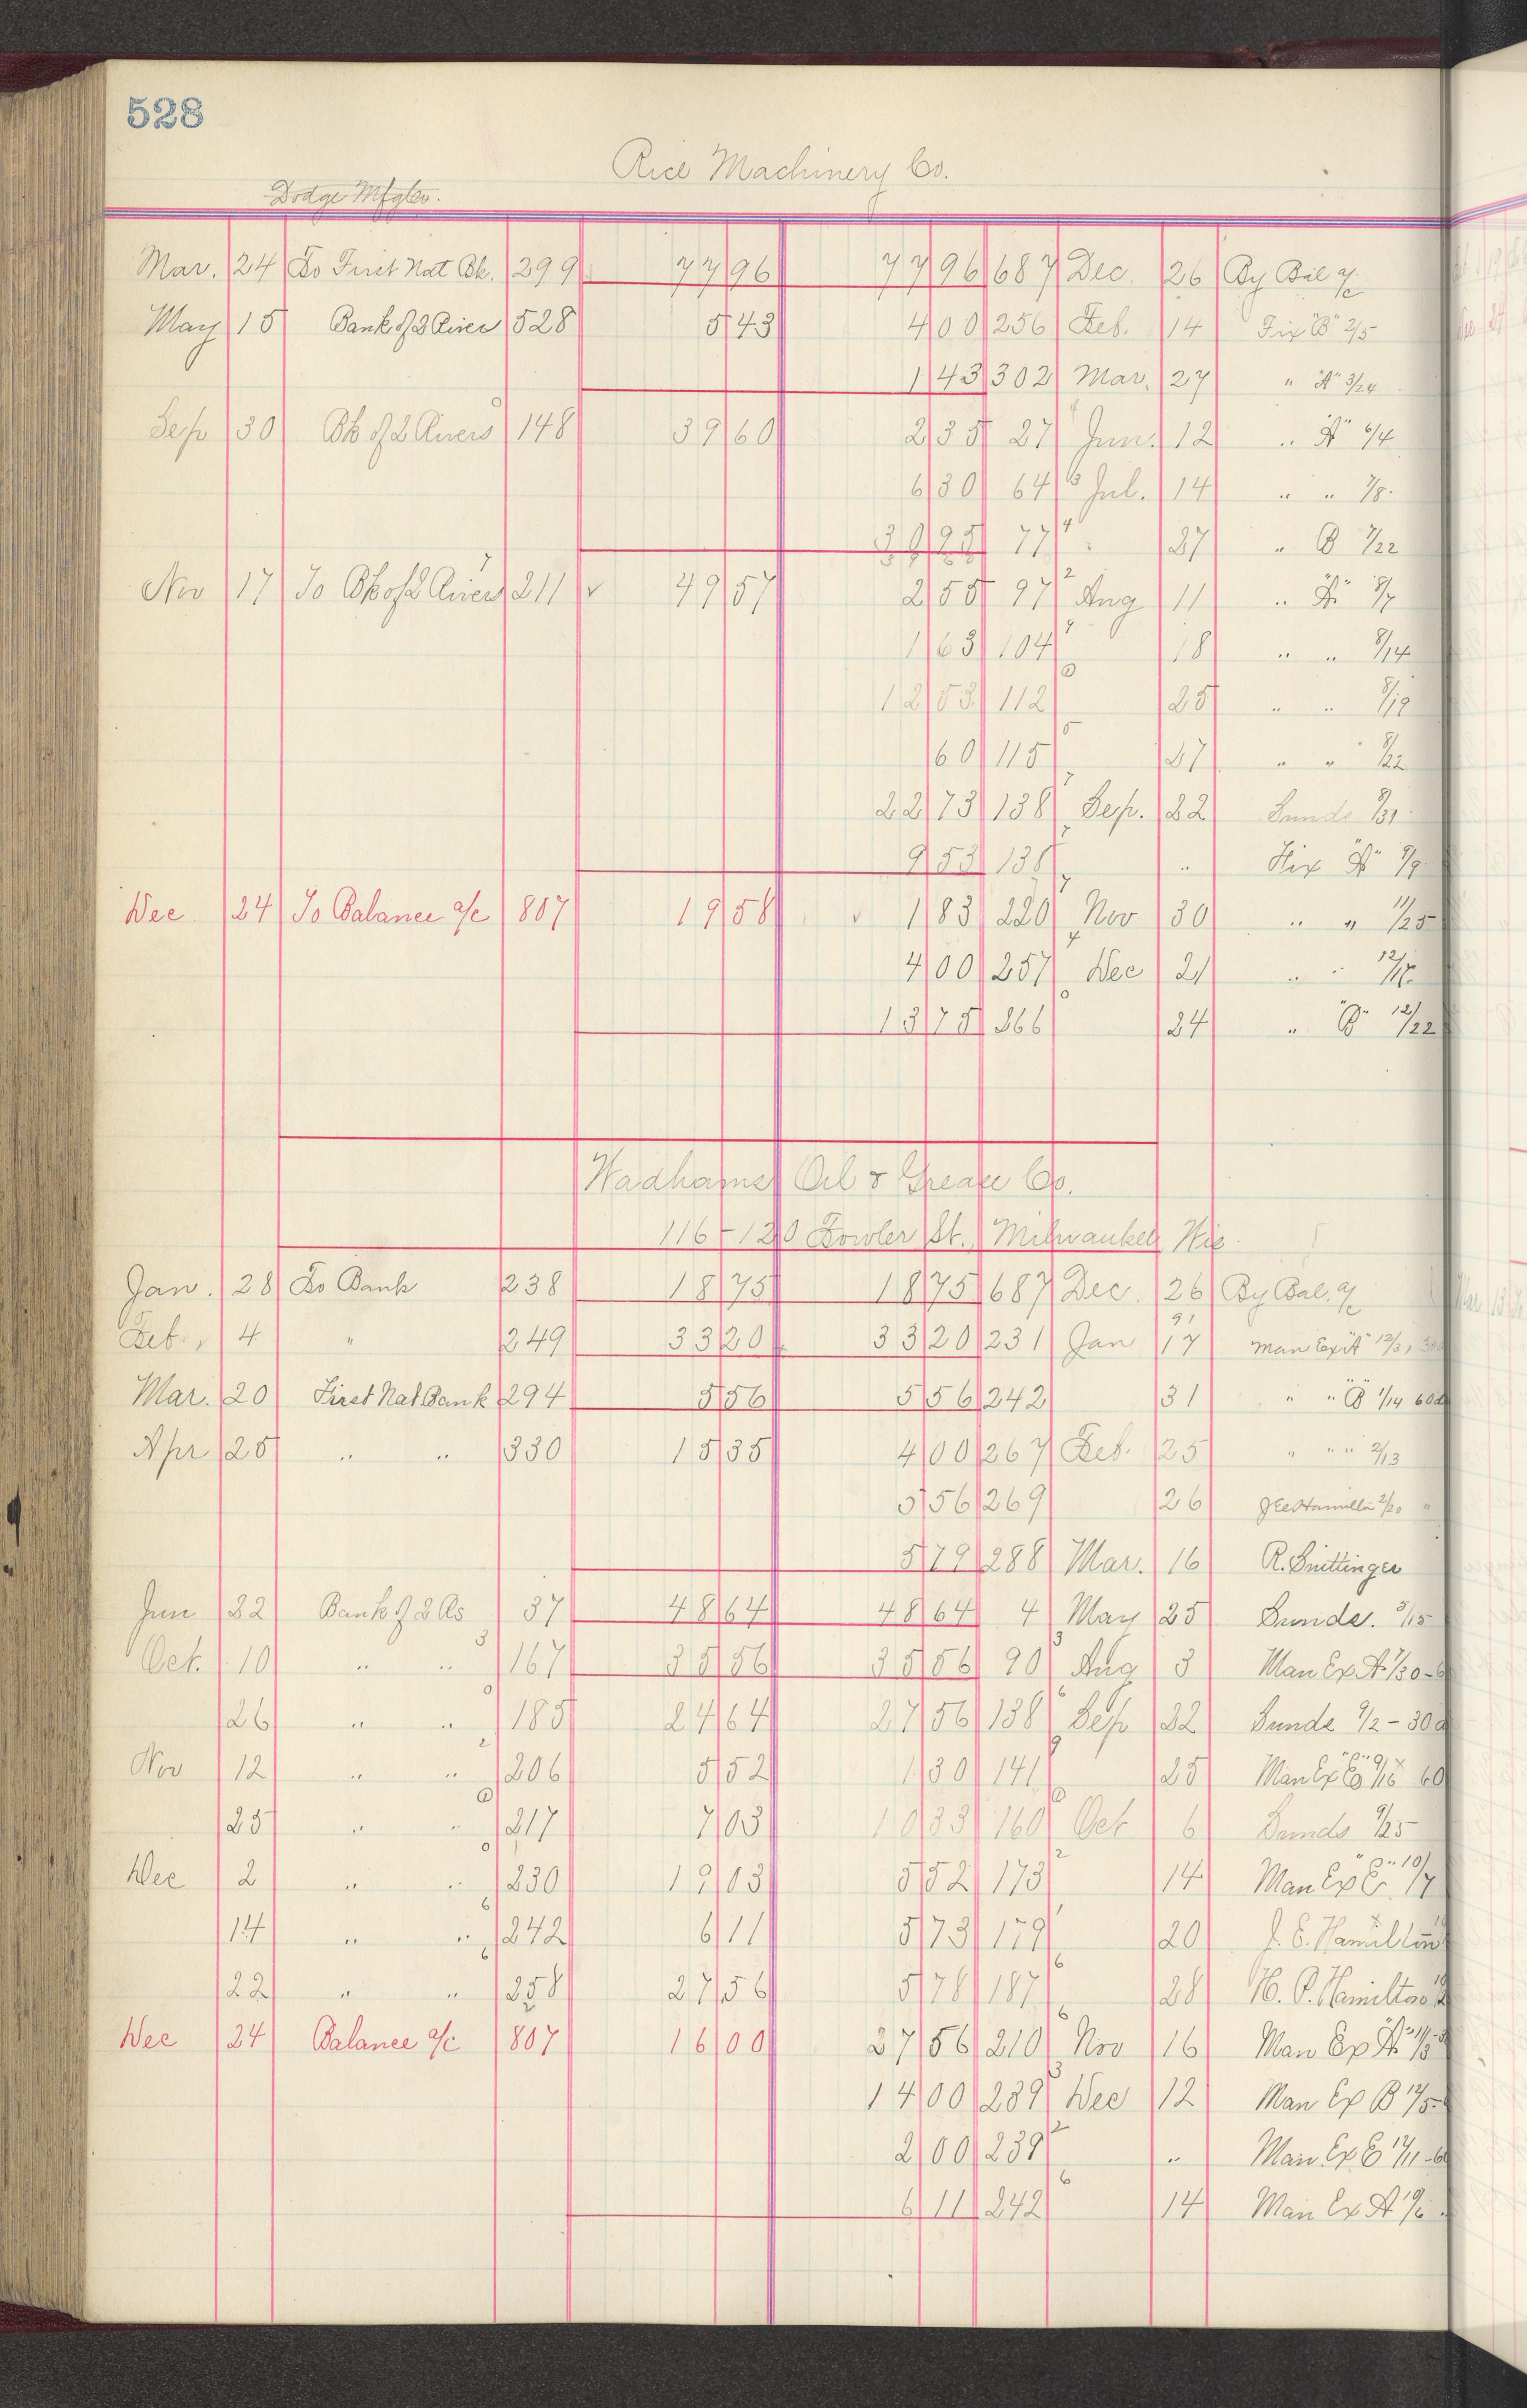 528
Rice Machinery Co.
Dodge Mfg Co.
Mar. 24 To First Nat Bk. 299 77 96 77 96 687 Dec. 26 By Bal a/c
May 15 Bank of 2 River 528 5 43 4 00 256 Feb. 14 Fix "B" 2/5
1 43 302 Mar. 27 " "A" 3/24
Sep 30 Bk of 2 Rivers 148 39 60 2 35 27 Jun. 12 " "A" 6/4
6 30 64 Jul. 14 " " 7/8
77 27 " B 7/22
Nov 17 To Bk of 2 Rivers 211 ✓ 49 57 2 55 97 Aug 11 " "A" 8/7
1 63 104 18 " " 8/14
12 53 112 25 " " 8/19
60 115 27 " " 8/22
22 73 138 Sep. 22 Sunds 8/31
9 53 138 " Fix "A" 9/9
Dec 24 To Balance a/c 807 19 58 ✓ 1 83 220 Nov 30 " " 11/25
4 00 257 Dec 21 " "
13 75 266 24 " "B" 12/22
Wadhams Oil & Grease Co.
116-120 Fowler St., Milwaukee, Wis.
Jan. 28 To Bank 238 18 75 18 75 687 Dec. 26 By Bal. a/c
Feb., 4 " 249 33 20 33 20 231 Jan 17 Man Ex "A" 12/31
Mar. 20 First Nat Bank 294 5 56 5 56 242 31 " " "B" 1/14 60d
Apr 25 " " 330 15 35 4 00 267 Feb. 25 " " " 2/13
5 56 269 26 J E Hamilton 2/20 "
5 79 288 Mar. 16 R. Suettinger
Jun 22 Bank of 2 Rs 37 48 64 48 64 4 May 25 Sunde. 5/15
Oct. 10 " " 167 35 56 35 56 90 Aug 3 Man Ex A 7/30-6
26 " " 185 24 64 27 56 138 Sep 22 Sunde 9/2-30d
Nov 12 " " 206 5 52 1 30 141 25 Man Ex 60
25 " " 217 7 03 10 33 160 Oct 6 Sunds 9/25
Dec 2 " " 230 19 03 5 52 173 14 Man Ex 10/7
14 " " 242 6 11 5 73 179 20 J. E. Hamilton
22 " " 258 27 56 5 78 187 28 H. P. Hamilton
Dec 24 Balance a/c 807 16 00 27 56 210 Nov 16 Man Ex "A"
14 00 239 Dec 12 Man Ex B 12/5
2 00 239 " Man Ex 12/11-6
6 11 242 14 Man Ex A